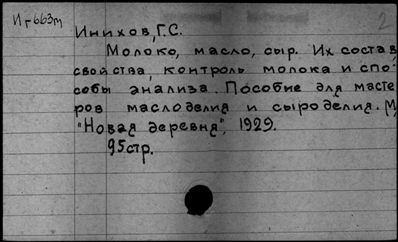 Иг663т
2
Инихов, Г.С.
Молоко, масло, сыр. Их состав,
свойства, контроль молока и спо-
собы анализа. Пособие для масте
ров маслоделия и сыроделия. М,
"Новая деревня", 1929.
95стр.